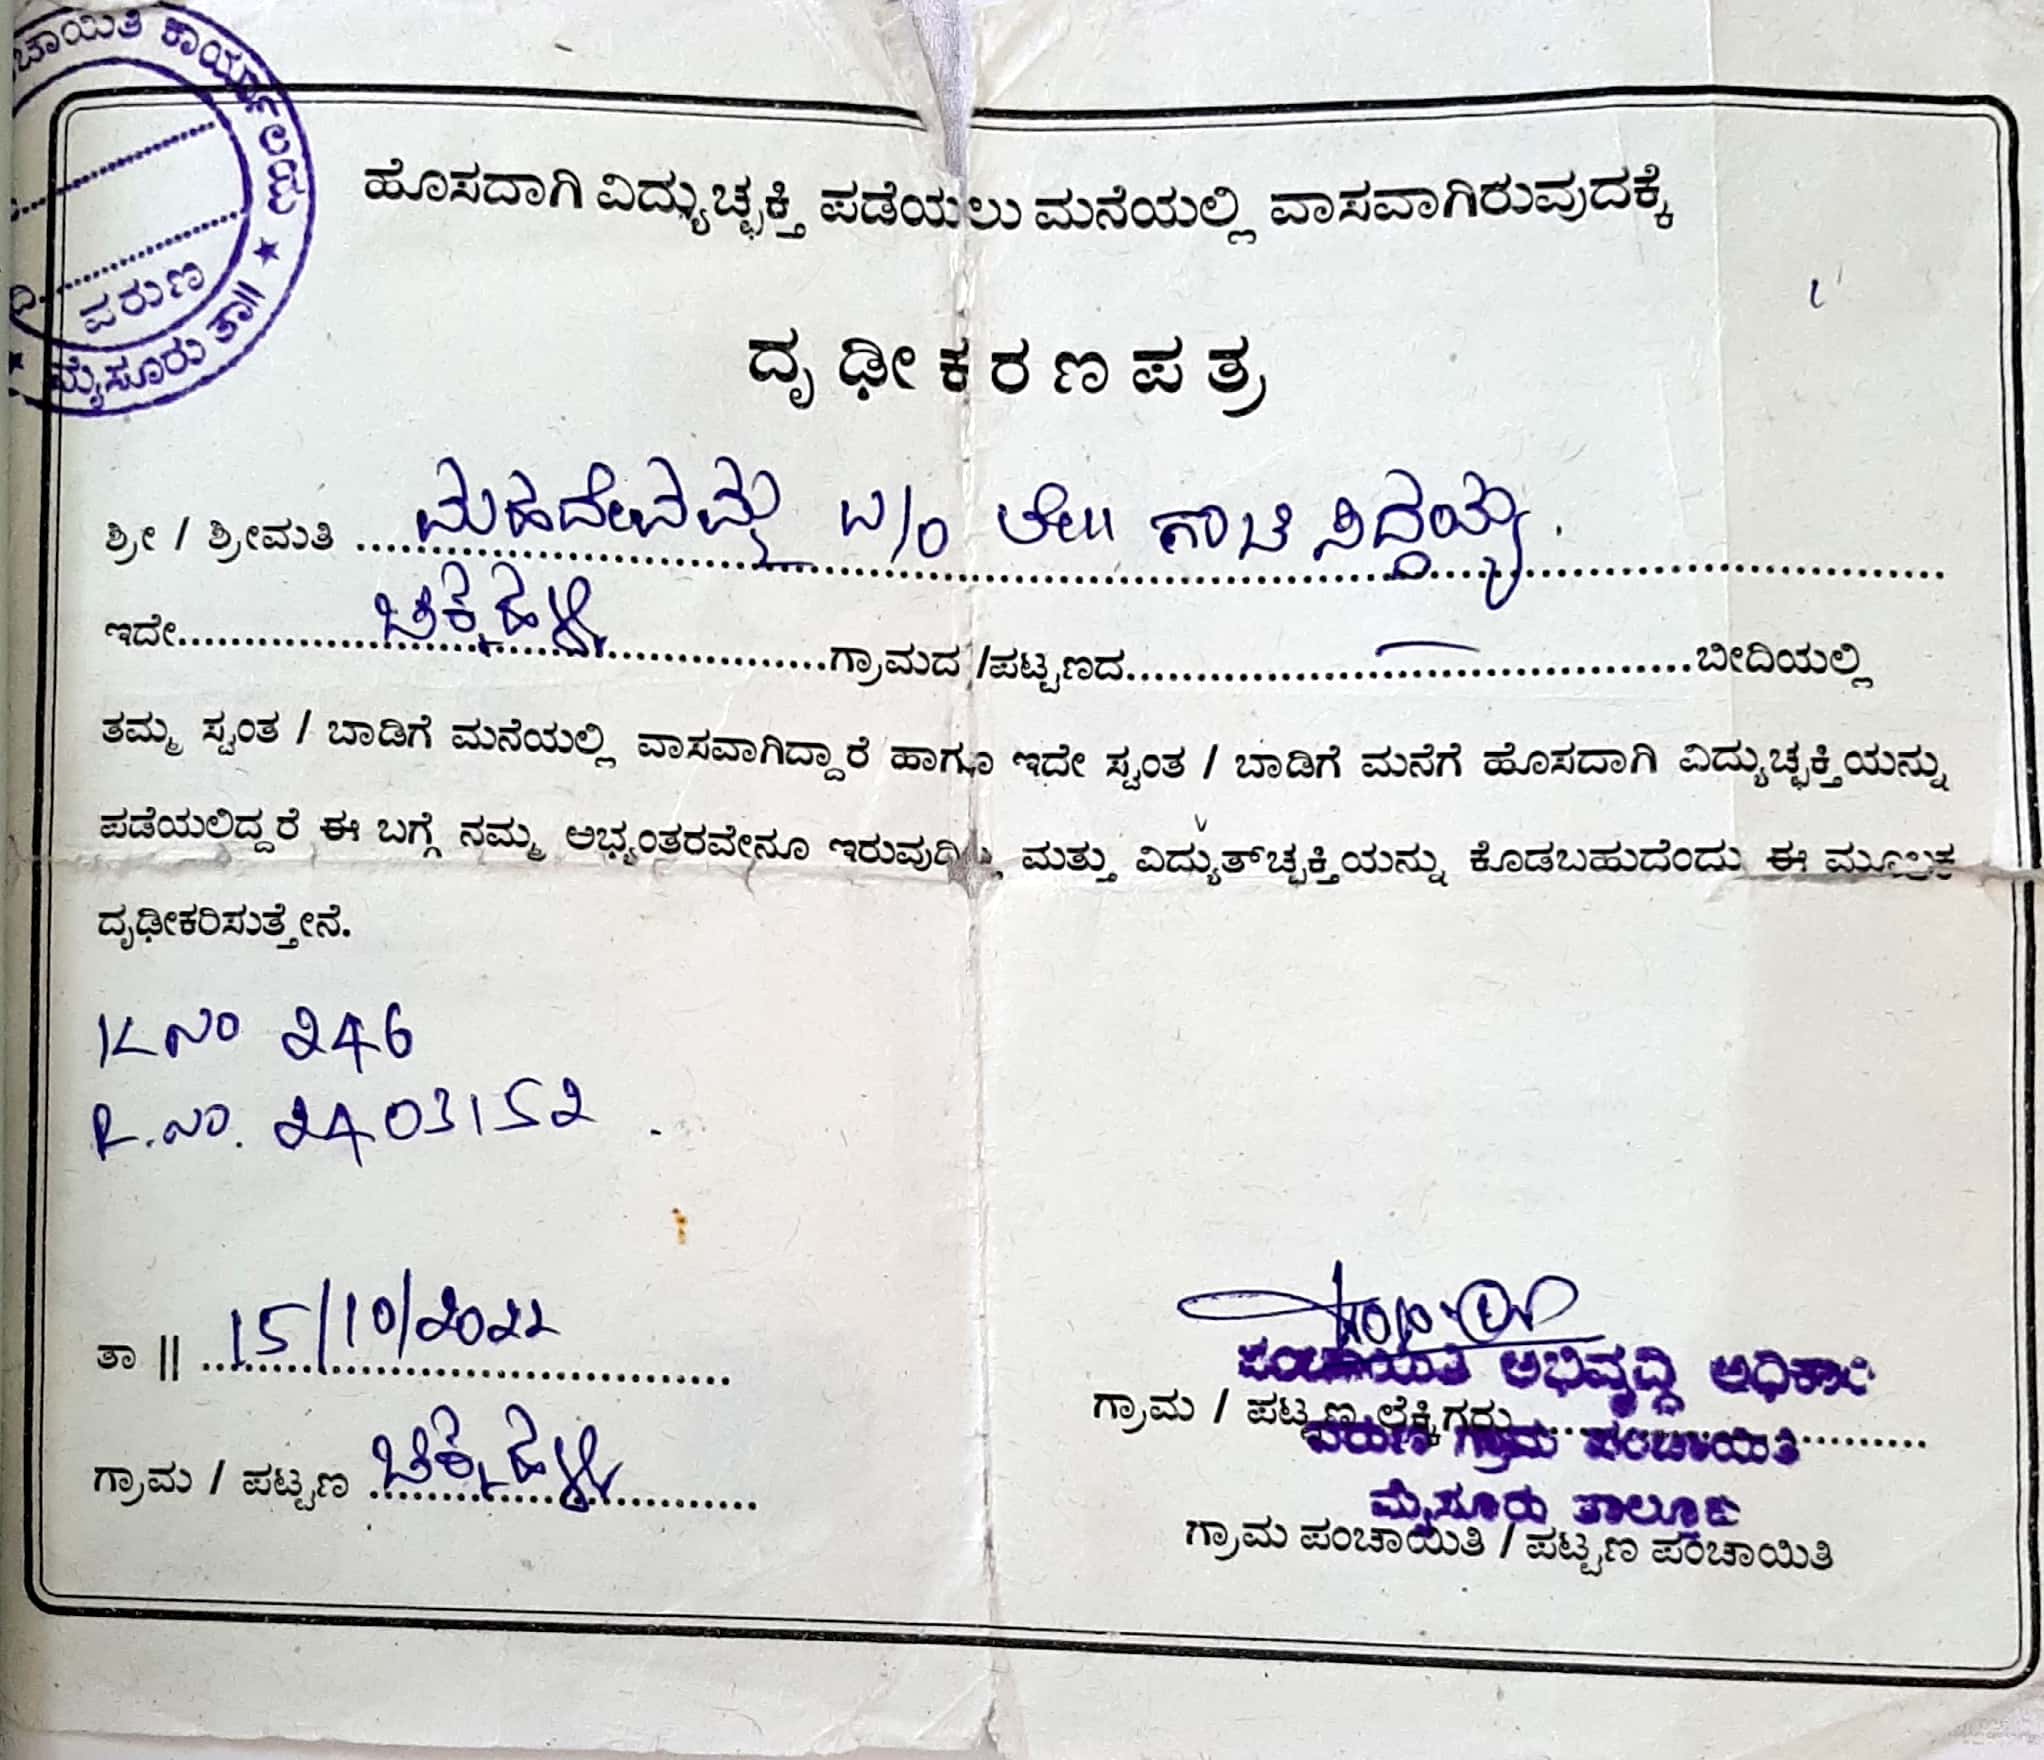 ಚಾಯಿತಿ ಕಾರ್ಯಾಲಯ
ವರುಣ
ಮೈಸೂರು ತಾ||
ಹೊಸದಾಗಿ ವಿದ್ಯುಚ್ಛಕ್ತಿ ಪಡೆಯಲು ಮನೆಯಲ್ಲಿ ವಾಸವಾಗಿರುವುದಕ್ಕೆ
ದೃಢೀಕರಣಪತ್ರ
ಶ್ರೀ / ಶ್ರೀಮತಿ ಮಹದೇವಮ್ಮ W/o ಲೇ|| ಗಾಚಿ ಸಿದ್ದಯ್ಯ.
ಇದೇ ಚಿಕ್ಕಹಳ್ಳಿ ಗ್ರಾಮದ /ಪಟ್ಟಣದ ಬೀದಿಯಲ್ಲಿ
ತಮ್ಮ ಸ್ವಂತ / ಬಾಡಿಗೆ ಮನೆಯಲ್ಲಿ ವಾಸವಾಗಿದ್ದಾರೆ ಹಾಗೂ ಇದೇ ಸ್ವಂತ / ಬಾಡಿಗೆ ಮನೆಗೆ ಹೊಸದಾಗಿ ವಿದ್ಯುಚ್ಛಕ್ತಿಯನ್ನು
ಪಡೆಯಲಿದ್ದರೆ ಈ ಬಗ್ಗೆ ನಮ್ಮ ಅಭ್ಯಂತರವೇನೂ ಇರುವುದಿಲ್ಲ ಮತ್ತು ವಿದ್ಯುತ್‌ಚ್ಛಕ್ತಿಯನ್ನು ಕೊಡಬಹುದೆಂದು ಈ ಮೂಲಕ
ದೃಢೀಕರಿಸುತ್ತೇನೆ.
K ನಂ 246
R.ನಂ. 2403152
ತಾ || 15/10/2022
ಪಂಚಾಯಿತಿ ಅಭಿವೃದ್ಧಿ ಅಧಿಕಾರಿ
ಗ್ರಾಮ / ಪಟ್ಟಣ ಲೆಕ್ಕಿಗರು
ವರುಣ ಗ್ರಾಮ ಪಂಚಾಯಿತಿ
ಗ್ರಾಮ / ಪಟ್ಟಣ ಚಿಕ್ಕಹಳ್ಳಿ
ಮೈಸೂರು ತಾಲ್ಲೂಕು
ಗ್ರಾಮ ಪಂಚಾಯಿತಿ / ಪಟ್ಟಣ ಪಂಚಾಯಿತಿ